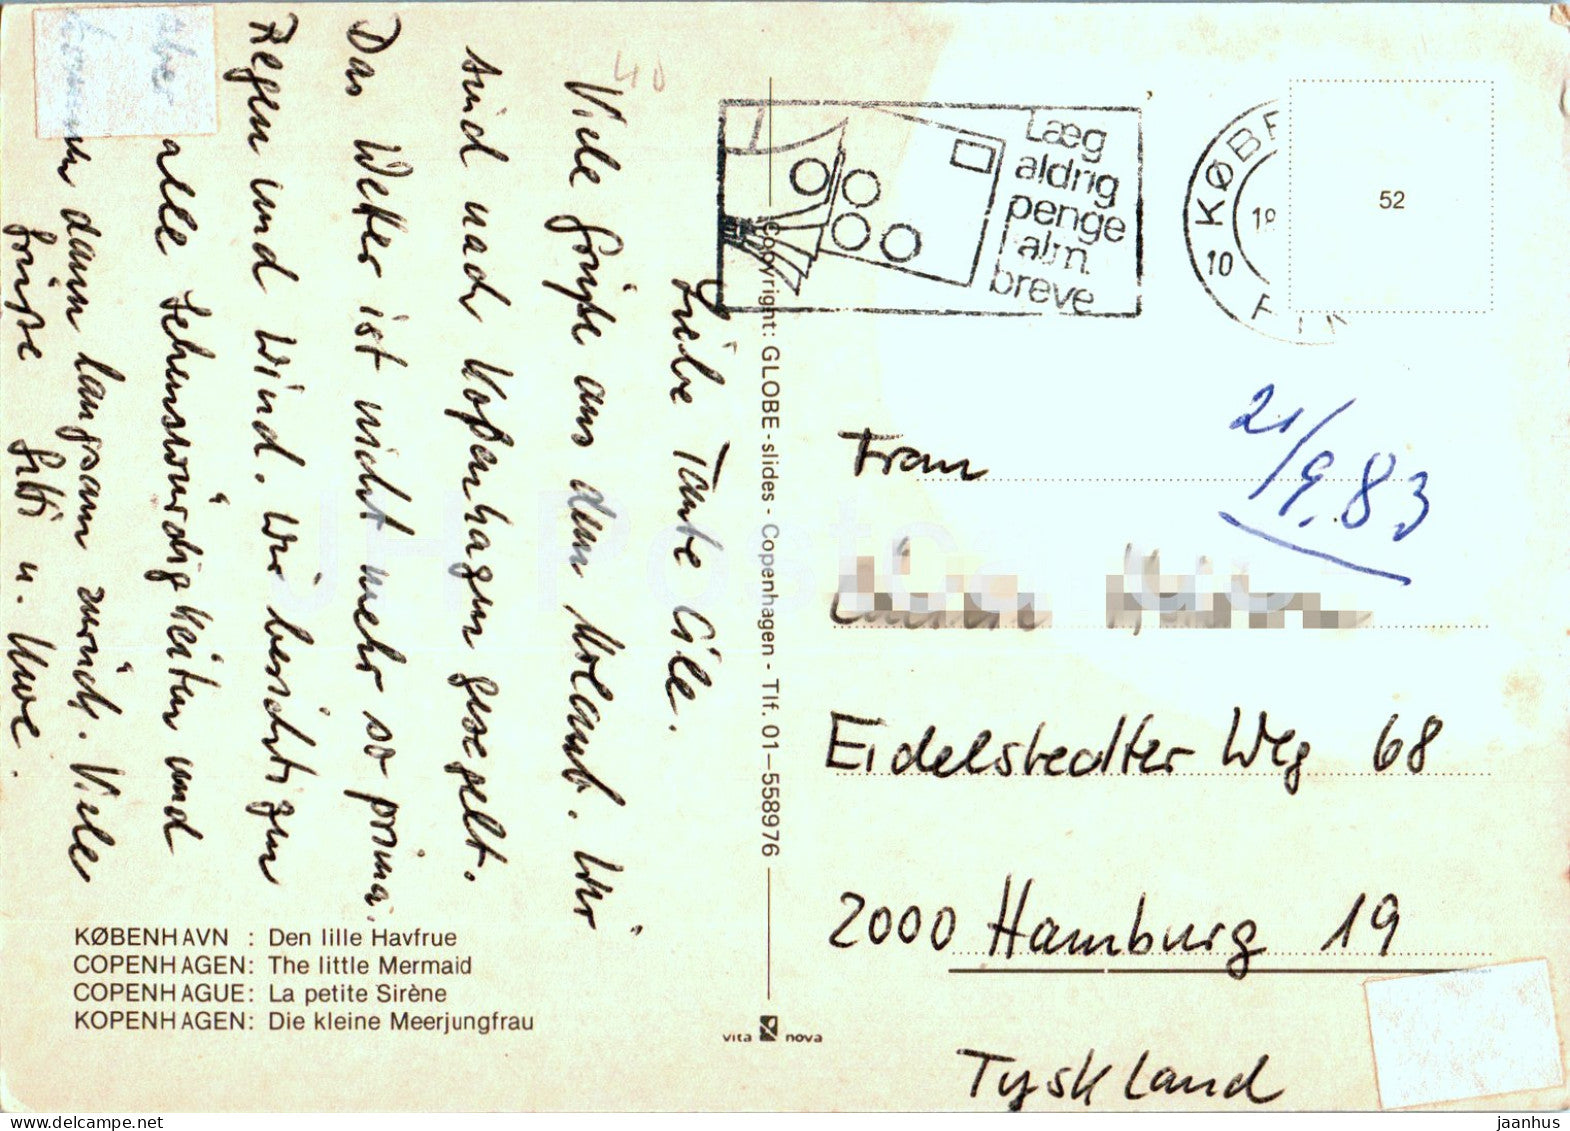 Liebe Tante Cile.
Viele Grüße aus dem Urlaub. Wir
sind nach Kopenhagen gesegelt.
Das Wetter ist nicht mehr so prima.
Regen und Wind. Wir besichtigen
aber alle Sehenswürdigkeiten und
kommen dann langsam zurück. Viele
Grüße Gitti u. Uwe.
40
KØBENHAVN : Den lille Havfrue
COPENHAGEN: The little Mermaid
COPENHAGUE: La petite Sirène
KOPENHAGEN: Die kleine Meerjungfrau
Copyright: GLOBE-slides - Copenhagen - Tlf. 01-558976
vita nova
Læg
aldrig
penge
i alm.
breve
KØBE
19
10
52
21/9.83
Frau
Eidelstedter Weg 68
2000 Hamburg 19
Tyskland
JH Postcards
delcampe.net
jaanhus